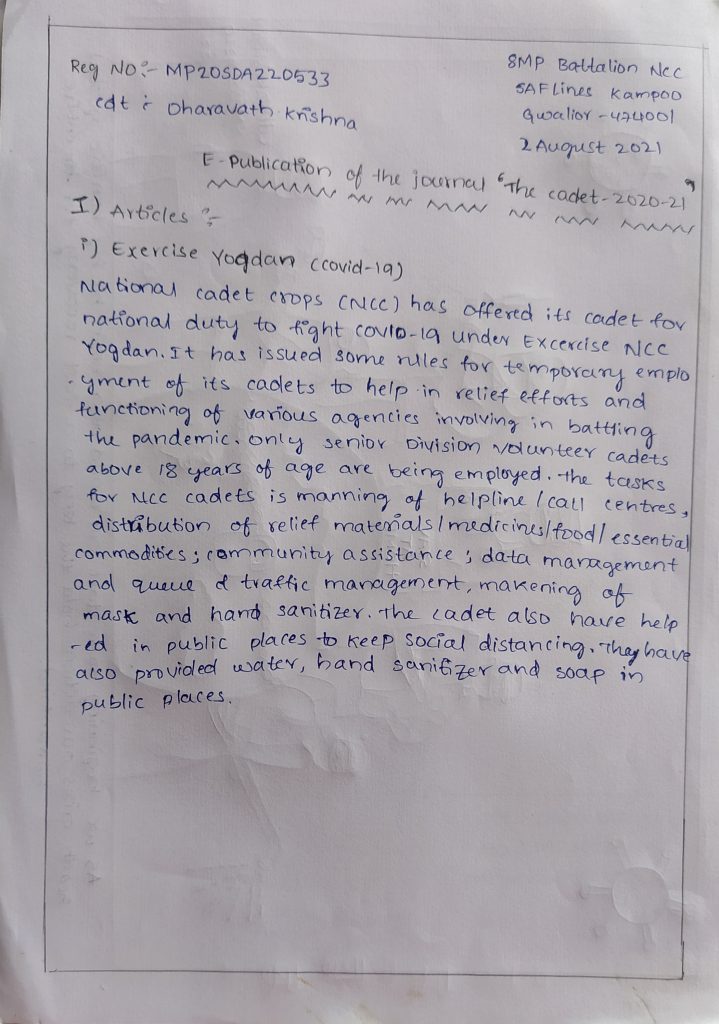 Reg NO:- MP20SDA220533
cdt :- Dharavath Krishna
8MP Battalion Ncc
SAF Lines Kampoo
Gwalior - 474001
2 August 2021
E-Publication of the journal "The cadet-2020-21"
I) Articles :-
i) Exercise Yogdan (covid-19)
National cadet crops (NCC) has offered its cadet for
national duty to fight covid-19 under Excercise NCC
Yogdan. It has issued some rules for temporary emplo
-yment of its cadets to help in relief efforts and
functioning of various agencies involving in battling
the pandemic. only senior Division volunteer cadets
above 18 years of age are being employed. the tasks
for NCC cadets is manning of helpline / call centres,
distribution of relief materials / medicines / food / essential
commodities ; community assistance ; data management
and queue & traffic management, makening of
mask and hand sanitizer. The cadet also have help
-ed in public places to keep social distancing. They have
also provided water, hand sanitizer and soap in
public places.